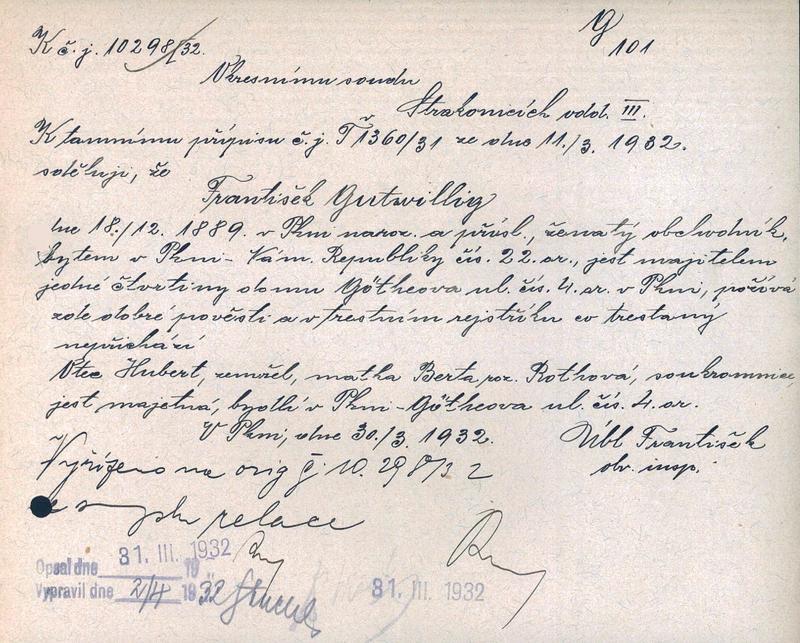 K č. j. 10298/32.
G
101
Okresnímu soudu
Strakonicích odd. III.
K tamnímu přípisu č. j. Tř 1360/31 ze dne 11./3. 1932.
sděluji, že
František Gutwillig
dne 18./12. 1889. v Plzni naroz. a přísl., ženatý obchodník,
bytem v Plzni - Nám. Republiky čís. 22. or., jest majitelem
jedné čtvrtiny domu Götheova ul. čís. 4. or. v Plzni, požívá
zde dobré pověsti a v trestním rejstříku co trestaný
nepřichází
Otec Hubert, zemřel, matka Berta roz. Rothová, soukromnice,
jest majetná, bydlí v Plzni - Götheova ul. čís. 4. or.
V Plzni, dne 30./3. 1932.
Übl František
obv. insp.
Vyřízeno na orig č 10.298/32
relace
Opsal dne 31. III. 1932 19
Vypravil dne 2/4 1932
31. III. 1932